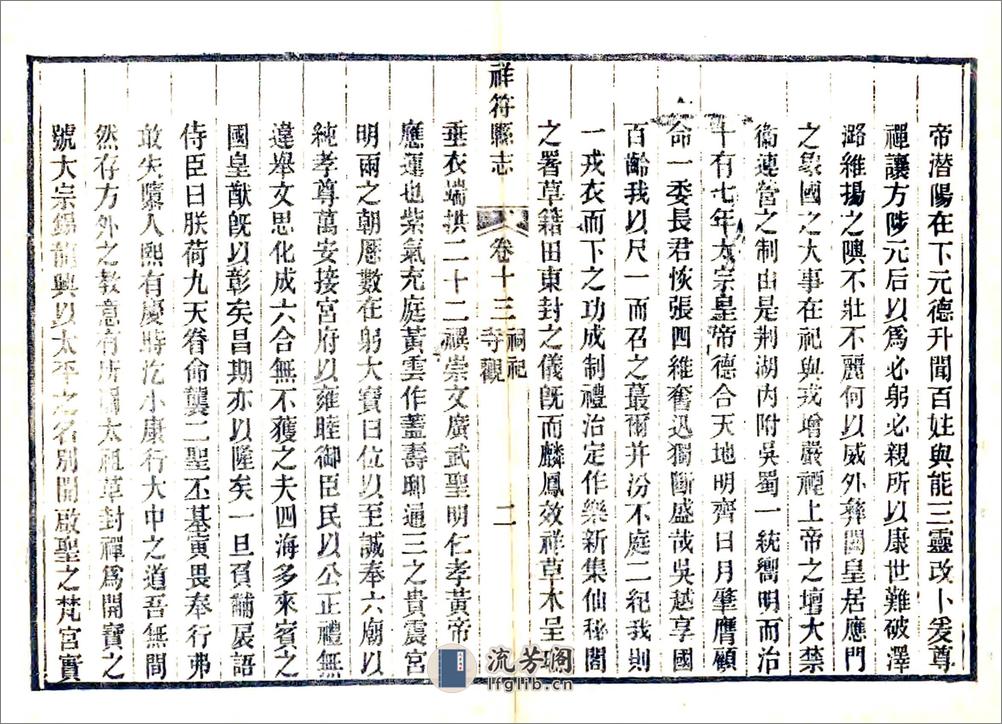 帝潛陽在下元德升聞百姓與能三靈改卜爰尊
禪讓方陟元后以為必躬必親所以康世難破澤
潞維揚之隩不壯不麗何以威外彝閟皇居應門
之象國之大事在祀與戎增嚴禋上帝之壇大禁
衞連營之制由是荆湖內附吳蜀一統嚮明而治
十有七年太宗皇帝德合天地明齊日月肇膺顧
命一委長君恢張四維奮迅獨斷盛哉吳越享國
百齡我以尺一而召之蕞爾并汾不庭二紀我則
一戎衣而下之功成制禮治定作樂新集仙秘閣
之署草籍田東封之儀旣而麟鳳效祥草木呈
祥符縣志
卷十三
祠祀
寺觀
二
垂衣端拱二十二禩崇文廣武聖明仁孝黃帝
應運也紫氣充庭黃雲作蓋壽邸通三之貴震宮
明兩之朝厯數在躬大寶曰位以至誠奉六廟以
純孝尊萬安接宮府以雍睦御臣民以公正禮無
違舉文思化成六合無不獲之夫四海多來賓之
國皇猷旣以彰矣昌期亦以隆矣一旦負黼扆語
侍臣曰朕荷九天眷侖龔二聖丕基寅畏奉行弗
敢失墜人熙有慶時汔小康行大中之道吾無間
然存方外之教意有所謂太祖草封禪為開寶之
號大宗錫龍興以太平之名別開啟聖之梵宮實
流芳閣
lfglib.cn